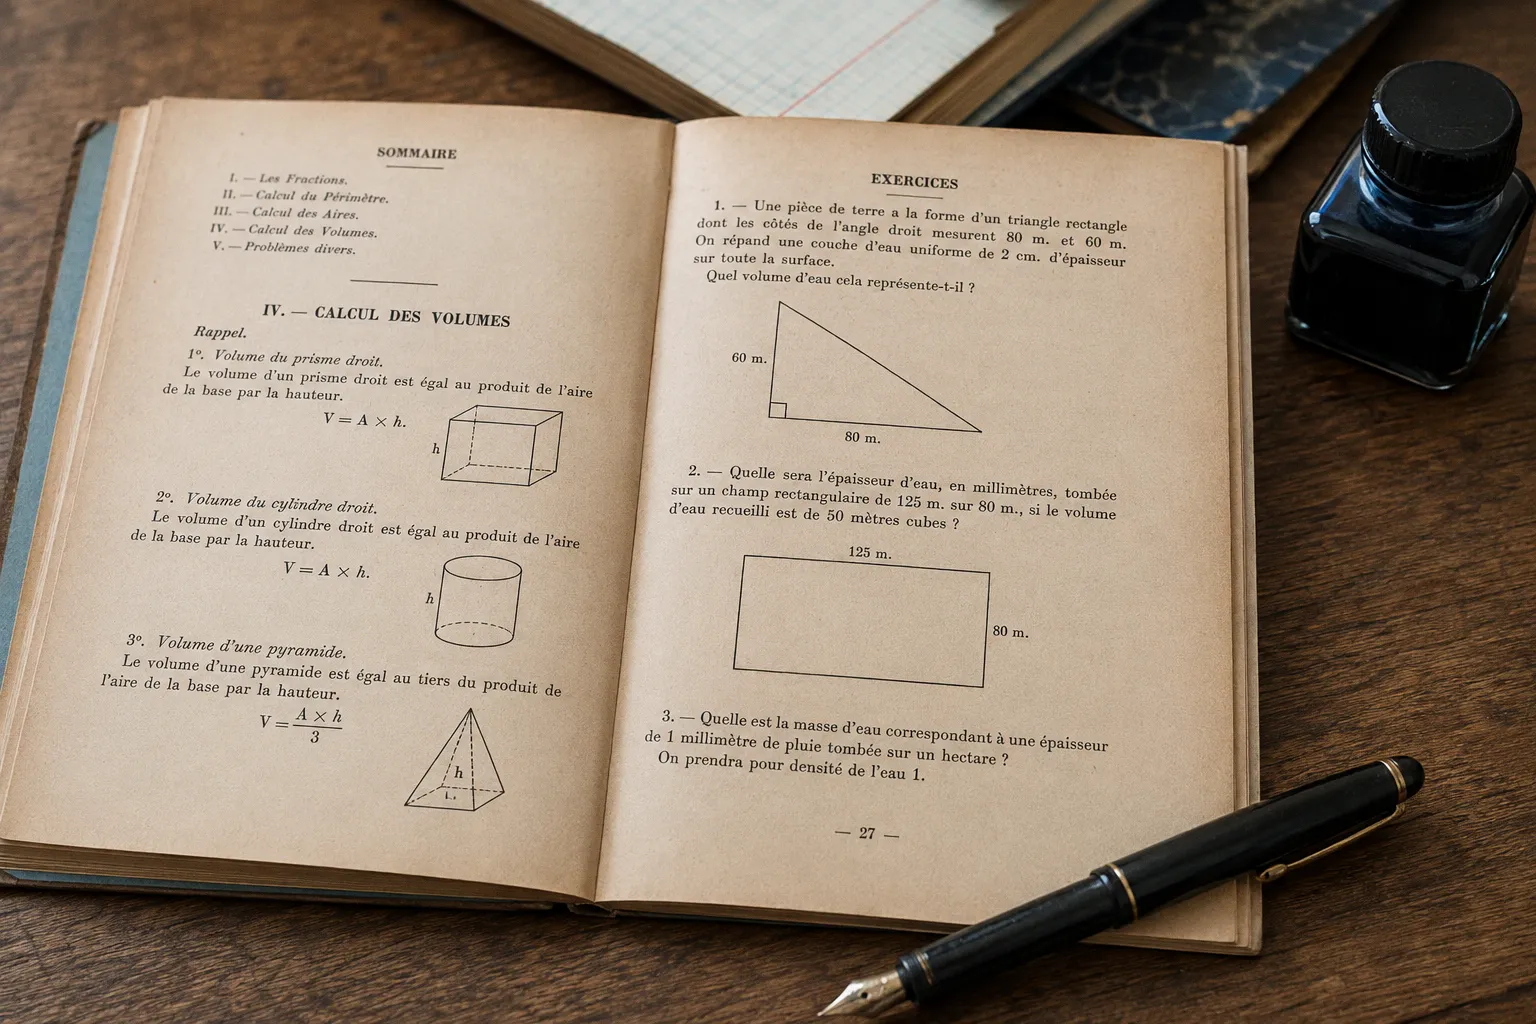 SOMMAIRE
I. — Les Fractions.
II. — Calcul du Périmètre.
III. — Calcul des Aires.
IV. — Calcul des Volumes.
V. — Problèmes divers.
IV. — CALCUL DES VOLUMES
Rappel.
1º. Volume du prisme droit.
Le volume d'un prisme droit est égal au produit de l'aire
de la base par la hauteur.
V = A × h.
h
2º. Volume du cylindre droit.
Le volume d'un cylindre droit est égal au produit de l'aire
de la base par la hauteur.
V = A × h.
h
3º. Volume d'une pyramide.
Le volume d'une pyramide est égal au tiers du produit de
l'aire de la base par la hauteur.
V = A × h
3
h
EXERCICES
1. — Une pièce de terre a la forme d'un triangle rectangle
dont les côtés de l'angle droit mesurent 80 m. et 60 m.
On répand une couche d'eau uniforme de 2 cm. d'épaisseur
sur toute la surface.
Quel volume d'eau cela représente-t-il ?
60 m.
80 m.
2. — Quelle sera l'épaisseur d'eau, en millimètres, tombée
sur un champ rectangulaire de 125 m. sur 80 m., si le volume
d'eau recueilli est de 50 mètres cubes ?
125 m.
80 m.
3. — Quelle est la masse d'eau correspondant à une épaisseur
de 1 millimètre de pluie tombée sur un hectare ?
On prendra pour densité de l'eau 1.
— 27 —